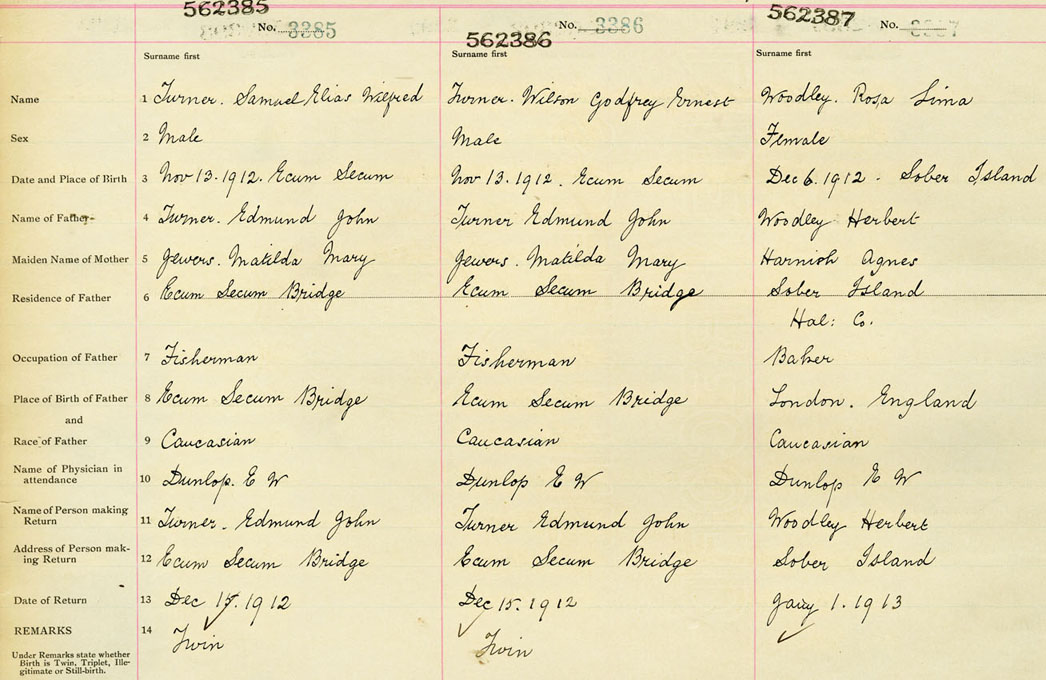 562385 No. 3385 562386 No. 3386 562387 No.
Surname first Surname first Surname first
Name 1 Turner. Samuel Elias Wilfred Turner. Wilson Godfrey Ernest Woodley. Rosa Lima
Sex 2 Male Male Female
Date and Place of Birth 3 Nov 13. 1912. Ecum Secum Nov 13. 1912. Ecum Secum Dec 6. 1912 - Sober Island
Name of Father 4 Turner. Edmund John Turner Edmund John Woodley Herbert
Maiden Name of Mother 5 Jewers. Matilda Mary Jewers. Matilda Mary Harnish Agnes
Residence of Father 6 Ecum Secum Bridge Ecum Secum Bridge Sober Island
Hal: Co.
Occupation of Father 7 Fisherman Fisherman Baker
Place of Birth of Father 8 Ecum Secum Bridge Ecum Secum Bridge London. England
and
Race of Father 9 Caucasian Caucasian Caucasian
Name of Physician in
attendance 10 Dunlop. E W Dunlop E W Dunlop E W
Name of Person making
Return 11 Turner. Edmund John Turner Edmund John Woodley Herbert
Address of Person mak-
ing Return 12 Ecum Secum Bridge Ecum Secum Bridge Sober Island
Date of Return 13 Dec 15. 1912 Dec 15. 1912 Jany 1. 1913
REMARKS 14 Twin Twin
Under Remarks state whether
Birth is Twin, Triplet, Ille-
gitimate or Still-birth.